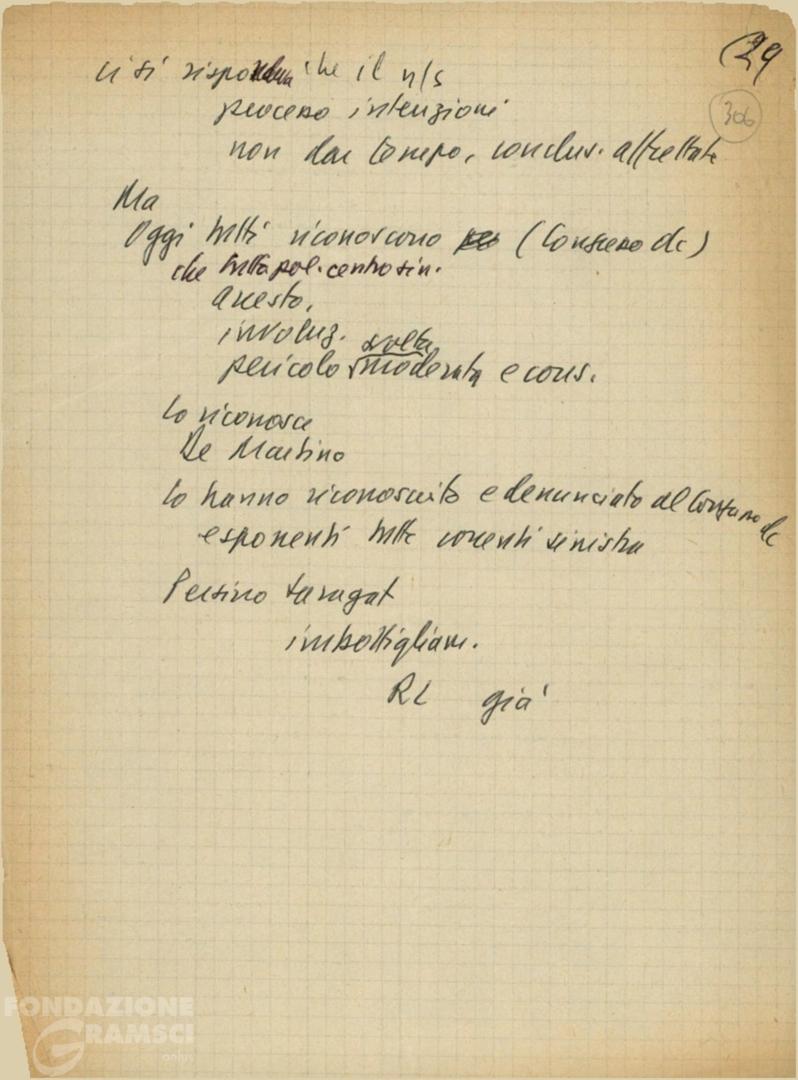 (29
306
ci si rispondeva che il n/s
processo intenzioni
non dar tempo, conclus. affrettate
Ma
Oggi tutti riconoscono (Congresso dc)
che tutta pol. centrosin.
arresto,
involuz.
svolta
pericolo moderata e cons.
Lo riconosce
De Martino
Lo hanno riconosciuto e denunciato al Congresso dc
esponenti tutte correnti sinistra
Persino Saragat
imbottigliam.
già
FONDAZIONE
GRAMSCI
onlus